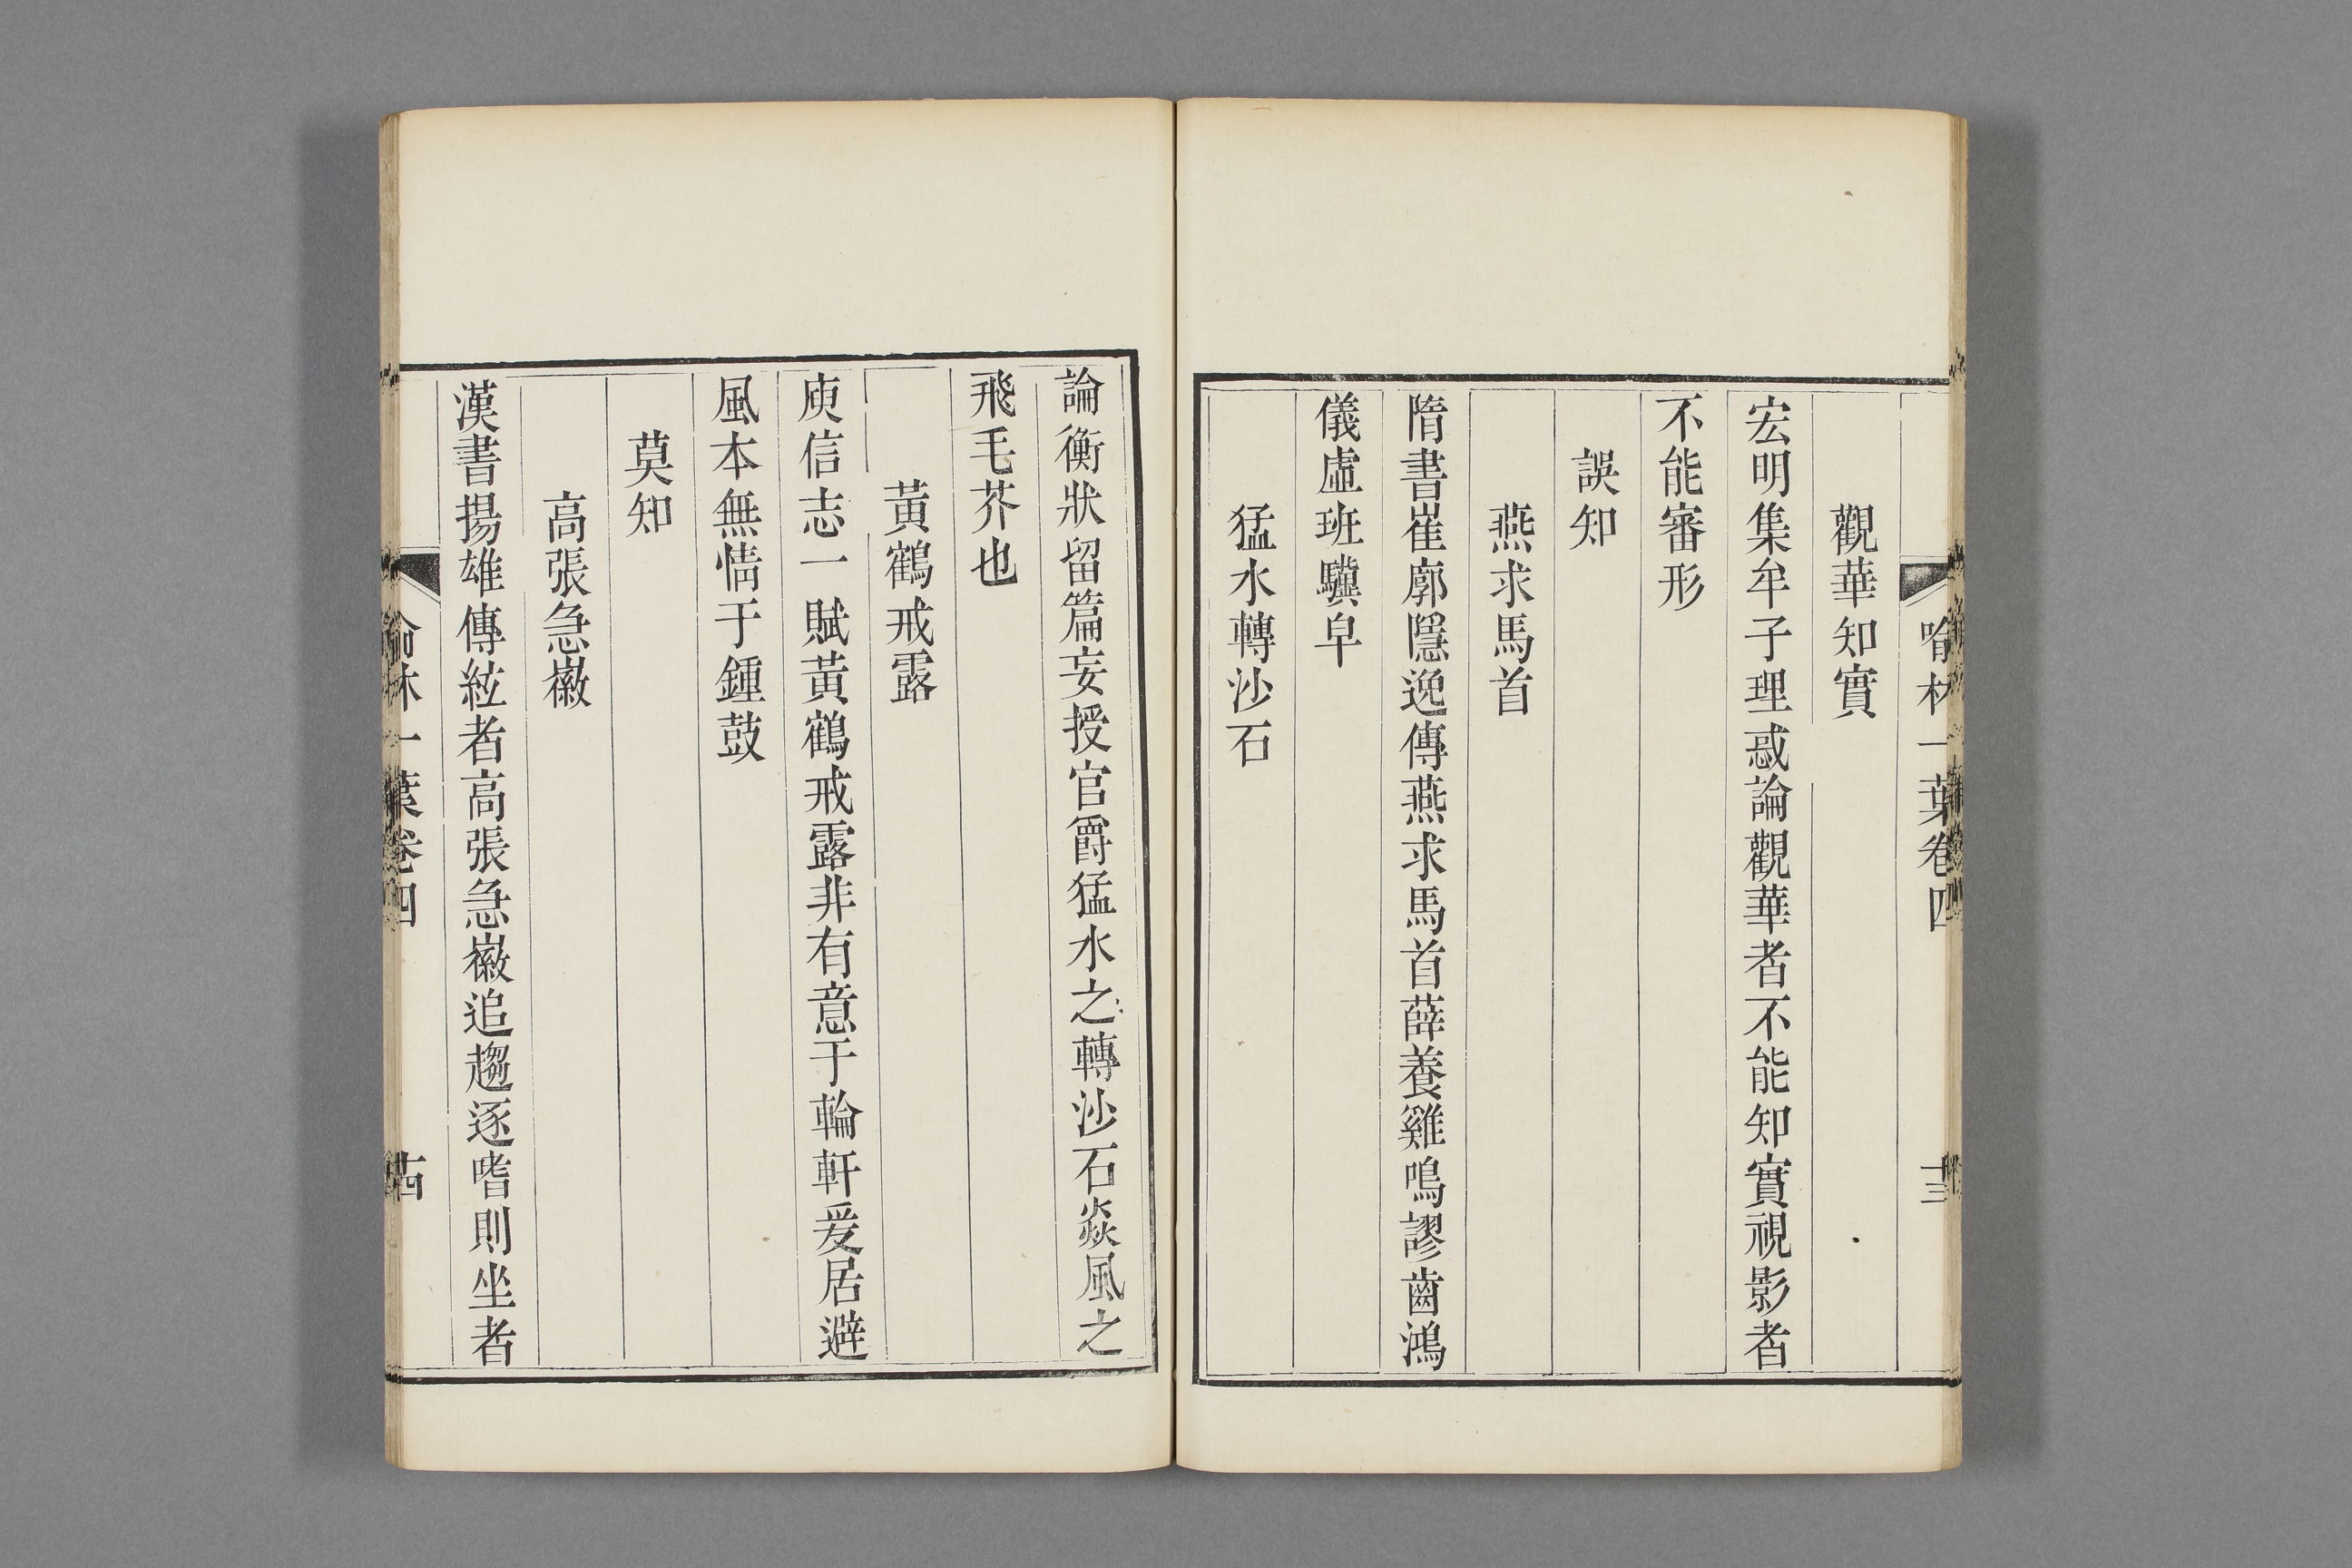 喻林一葉卷四
十三
觀華知實
宏明集牟子理惑論觀華者不能知實視影者
不能審形
誤知
燕求馬首
隋書崔廓隱逸傳燕求馬首薛養雞鳴謬齒鴻
儀虛班驥皁
猛水轉沙石
論衡狀留篇妄授官爵猛水之轉沙石焱風之
飛毛芥也
黃鶴戒露
庾信志一賦黃鶴戒露非有意于輪軒爰居避
風本無情于鍾鼓
莫知
高張急徽
漢書揚雄傳絃者高張急徽追趨逐嗜則坐者
喻林一葉卷四
十四